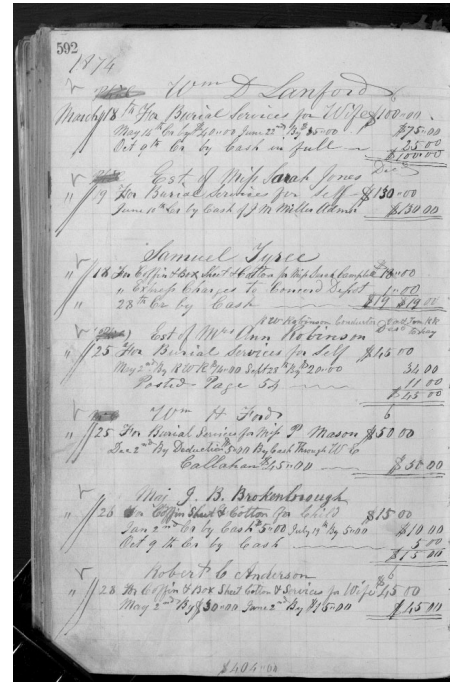 592
1874
Wm D Lanford
March 18th For Burial Services for Wife $100-00
May 16th Cr by $40-00 June 22nd By $35-00 $75-00
Oct 9th Cr by Cash in full 25 00
$100-00
Est of Miss Sarah Jones Dec
" 19 For Burial services for self $130-00
June 10th Cr by Cash of J M Miller Admr $130 00
Samuel Tyree
" 18 For Coffin & Box Sheet & Cotton for Miss Campbell 18-00
" Express Charges to Concord Depot 1-00
" 28th Cr by Cash $19 $19 00
R W Robinson Conductor
Est of Mrs Ann Robinson
" 25 For Burial Services for Self $45-00
May 2nd By R W R $14-00 Sept 28th By $20-00 34 00
Posted Page 54 11 00
$45-00
Wm H Ford
" 25 For Burial Services for Miss P Mason $50 00
Dec 2nd By Deduction $5-00 By Cash Through W C
Callahan $45-00 $50-00
Maj J. B. Brokenbrough
" 26 For Coffin Sheet & Cotton for Child $15 00
Jan 2nd Cr by Cash $5-00 July 19th By 5-00 $10 00
Oct 9th Cr by Cash 5 00
$15 00
Robert C Anderson
" 28 For Coffin & Box Sheet Cotton & Services for Wife $45 00
May 2nd By $30-00 June 2nd By $15-00 $45 00
$404-00